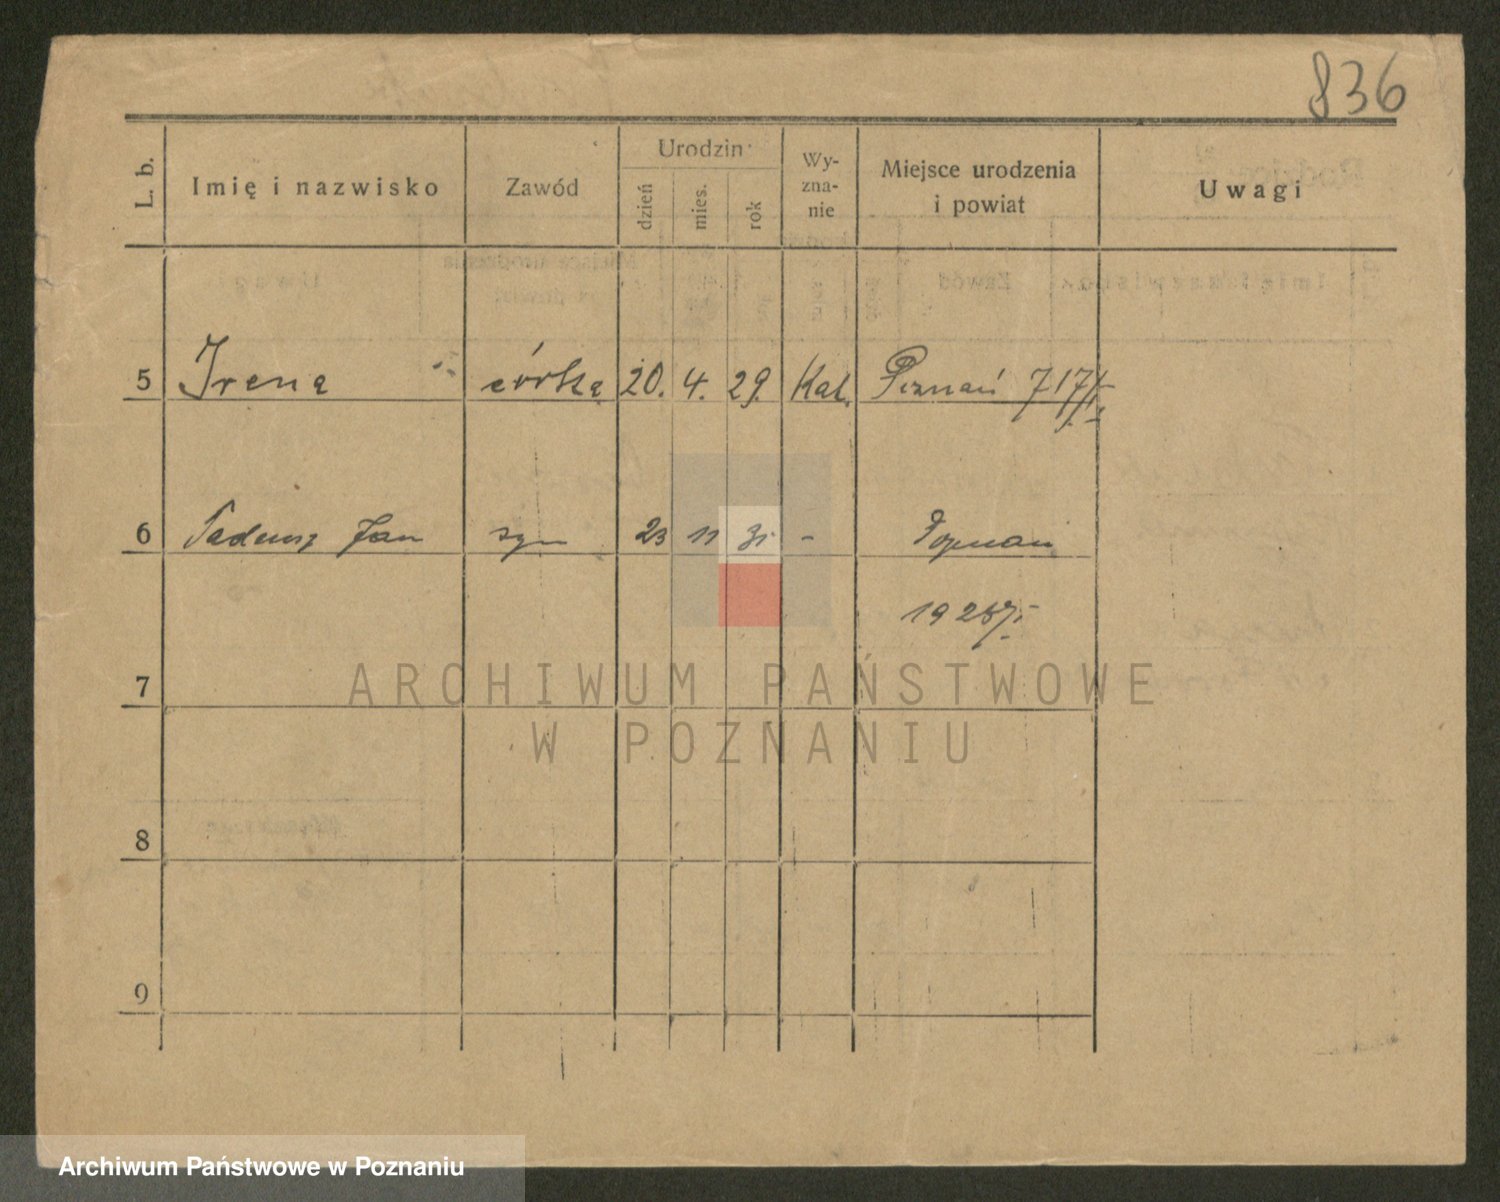 836
L. b. Imię i nazwisko Zawód Urodzin Wy-zna-nie Miejsce urodzenia i powiat Uwagi
dzień mies. rok
5 Irena córka 20. 4. 29. Kat. Poznań
6 Tadeusz Jan syn 23 11 31 - Poznań
7
ARCHIWUM PAŃSTWOWE
W POZNANIU
8
9
Archiwum Państwowe w Poznaniu